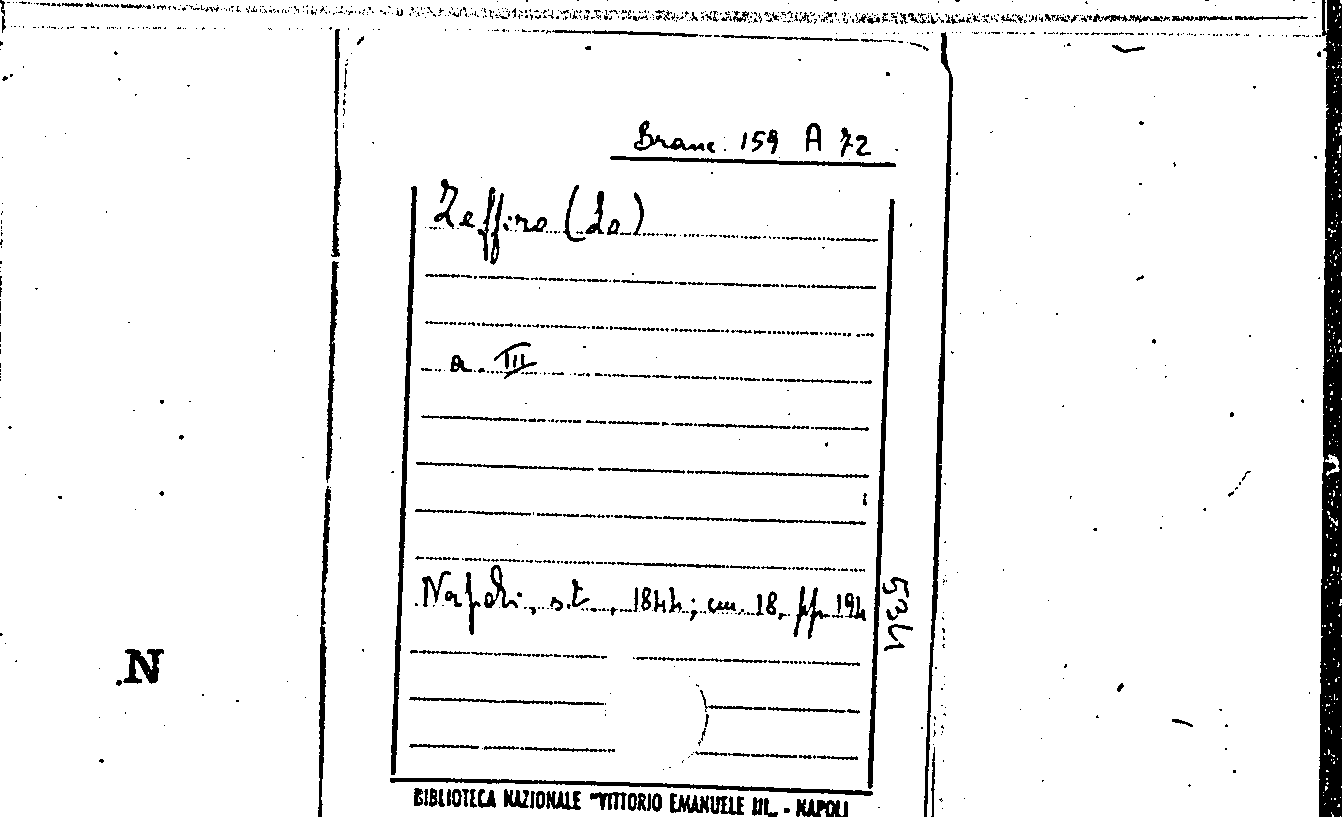 Branc. 159 A 72
Zeffiro (Lo)
a. III
Napoli, s.t., 1844; cm. 18, pp. 194
534
N
BIBLIOTECA NAZIONALE "VITTORIO EMANUELE III" - NAPOLI